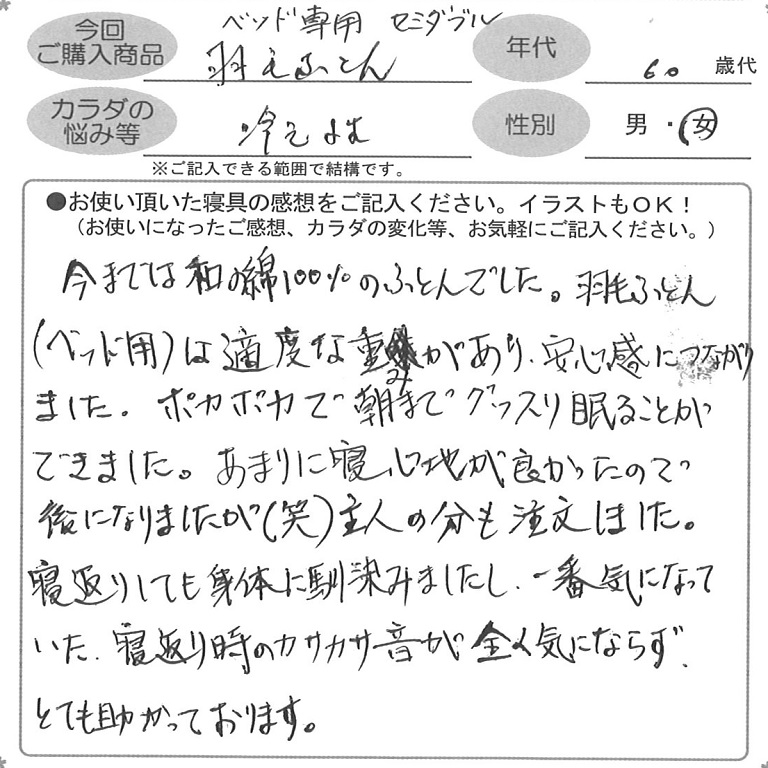 今回
ご購入商品
ベッド専用 セミダブル
羽毛ふとん
年代
60 歳代
カラダの
悩み等
冷え性
性別
男・女
※ご記入できる範囲で結構です。
●お使い頂いた寝具の感想をご記入ください。イラストもOK！
（お使いになったご感想、カラダの変化等、お気軽にご記入ください。）
今までは和の綿100%のふとんでした。羽毛ふとん
(ベッド用)は適度な重みがあり、安心感につながり
ました。ポカポカで朝までグッスリ眠ることが
できました。あまりに寝心地が良かったので
後になりましたが(笑)主人の分も注文しました。
寝返りしても身体に馴染みましたし、一番気になって
いた、寝返り時のカサカサ音が全く気にならず、
とても助かっております。